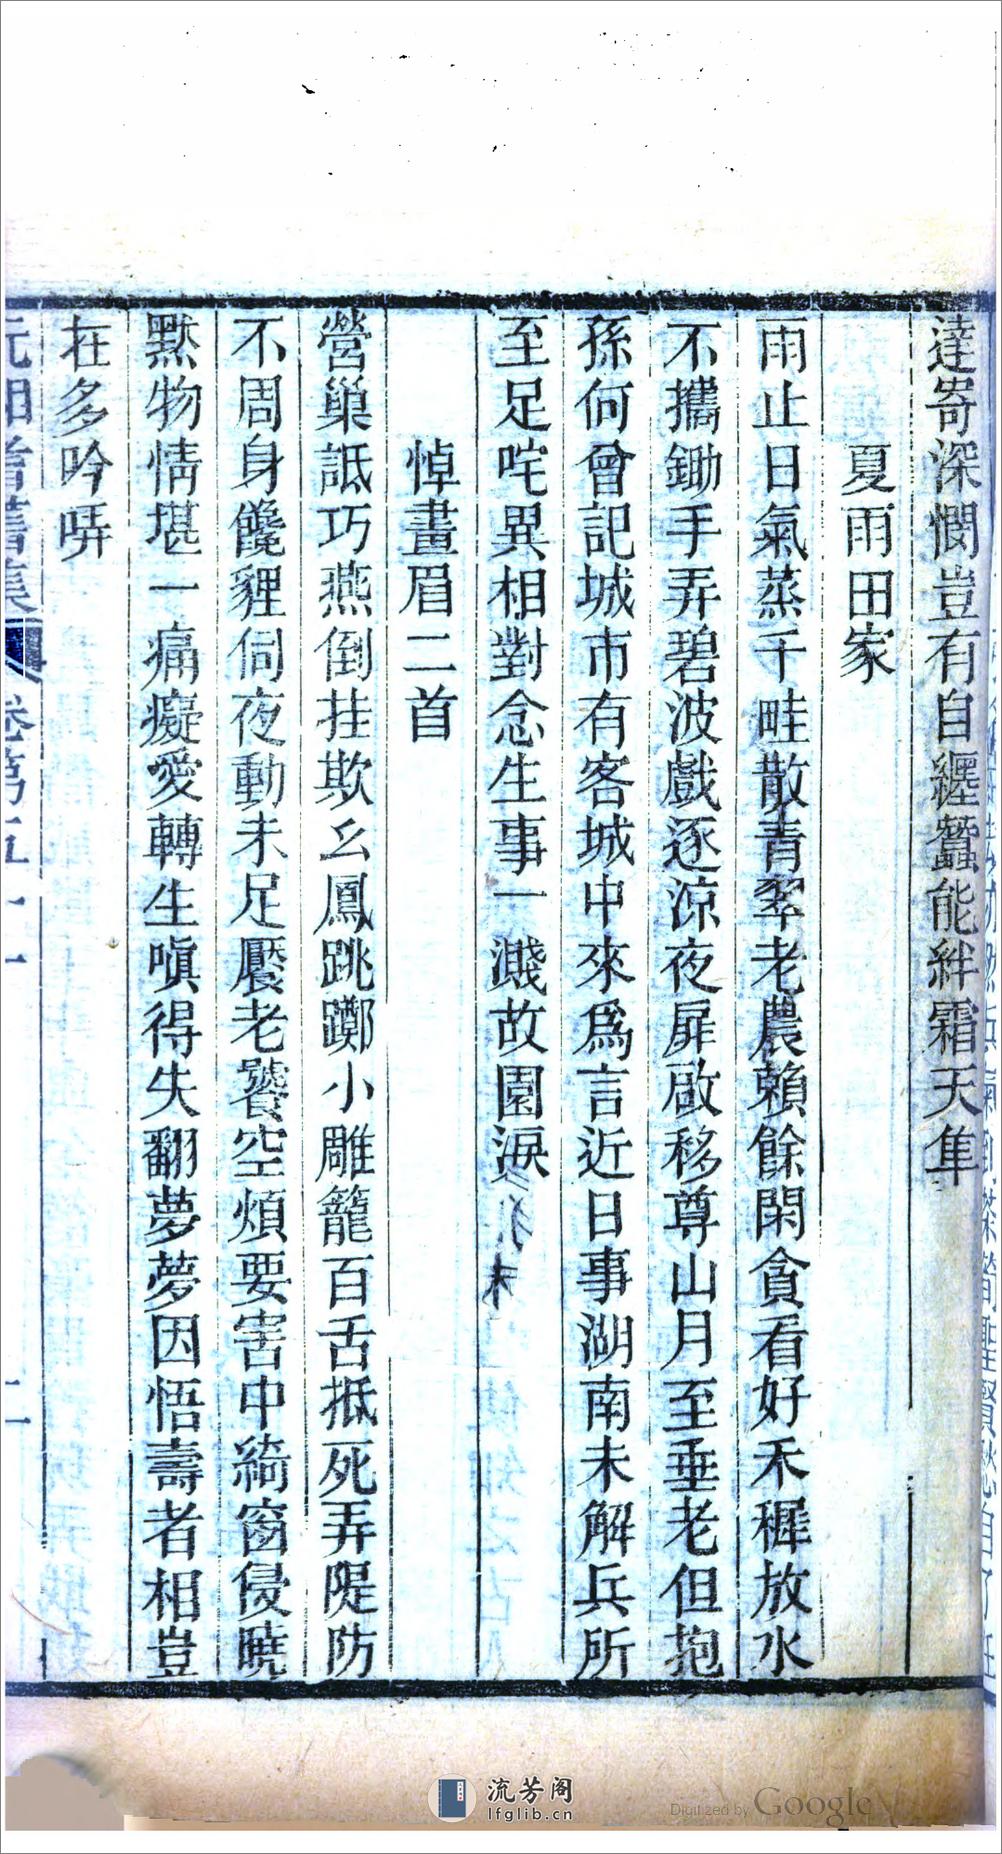 達寄深憫豈有自纒蠶能絆霜天隼
夏雨田家
雨止日氣蒸千畦散青翠老農賴餘閑貪看好禾穉放水
不攜鋤手弄碧波戲逐涼夜扉啟移尊山月至垂老但抱
孫何曾記城市有客城中來為言近日事湖南未解兵所
至足咤異相對念生事一濺故園淚
悼畫眉二首
營巢詆巧燕倒挂欺幺鳳跳躑小雕籠百舌抵死弄隄防
不周身饞貍伺夜動未足饜老饕空煩要害中綺窗侵曉
黙物情堪一痛癡愛轉生嗔得失翻夢夢因悟壽者相豈
在多吟哢
沅湘耆舊集 卷第五十一
流芳阁
lfglib.cn
Digitized by Google